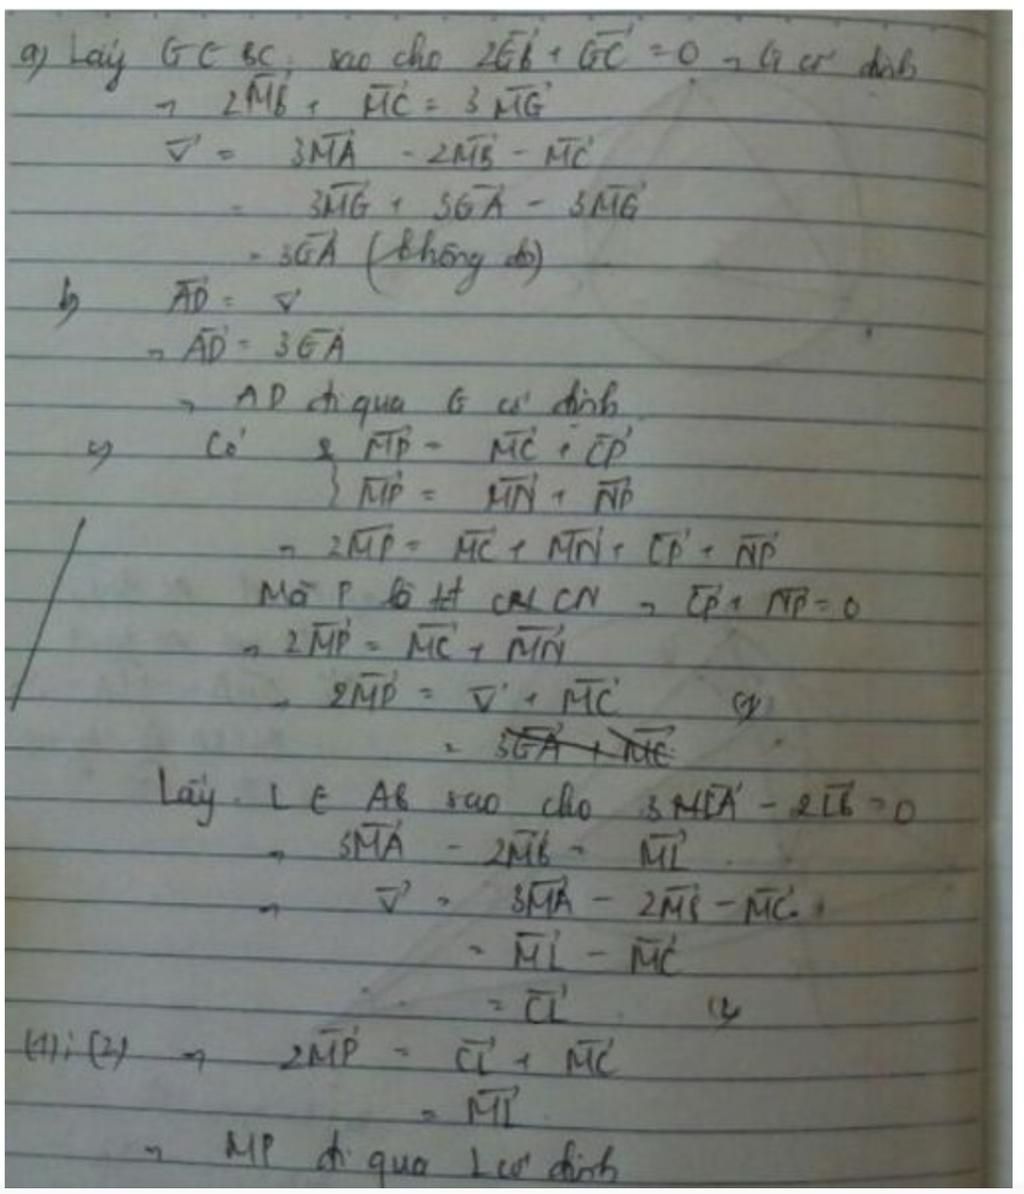 a) Lấy G ∈ BC sao cho 2GB⃗ + GC⃗ = 0 → G cố định
→ 2MB⃗ + MC⃗ = 3MG⃗
V⃗ = 3MA⃗ - 2MB⃗ - MC⃗
= 3MG⃗ + 3GA⃗ - 3MG⃗
= 3GA⃗ (không đổi)
b) AD⃗ = V⃗
→ AD⃗ = 3GA⃗
→ AD đi qua G cố định
c) Có { MP⃗ = MC⃗ + CP⃗
} MP⃗ = MN⃗ + NP⃗
→ 2MP⃗ = MC⃗ + MN⃗ + CP⃗ + NP⃗
Mà P là tđ CN → CP⃗ + NP⃗ = 0
→ 2MP⃗ = MC⃗ + MN⃗
→ 2MP⃗ = V⃗ + MC⃗ (1)
= 3GA⃗ + MC⃗
Lấy L ∈ AB sao cho 3LA⃗ - 2LB⃗ = 0
→ 3MA⃗ - 2MB⃗ = ML⃗
→ V⃗ = 3MA⃗ - 2MB⃗ - MC⃗
= ML⃗ - MC⃗
= CL⃗ (2)
(1); (2) → 2MP⃗ = CL⃗ + MC⃗
= ML⃗
→ MP đi qua L cố định